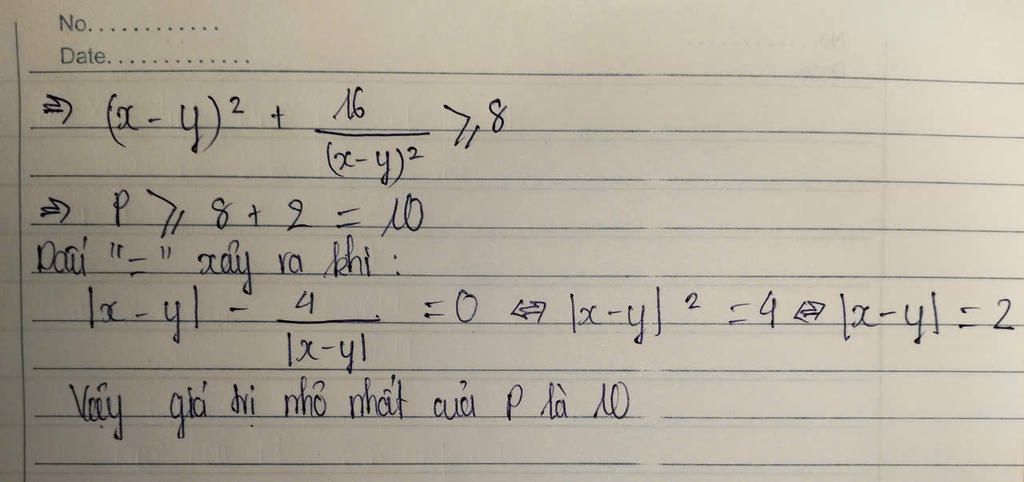 No............
Date.............
⇒ (x - y)² + 16/(x-y)² ⩾ 8
⇒ P ⩾ 8 + 2 = 10
Dấu "=" xảy ra khi :
|x - y| - 4/|x-y| = 0 ⇔ |x-y|² = 4 ⇔ |x-y| = 2
Vậy giá trị nhỏ nhất của P là 10